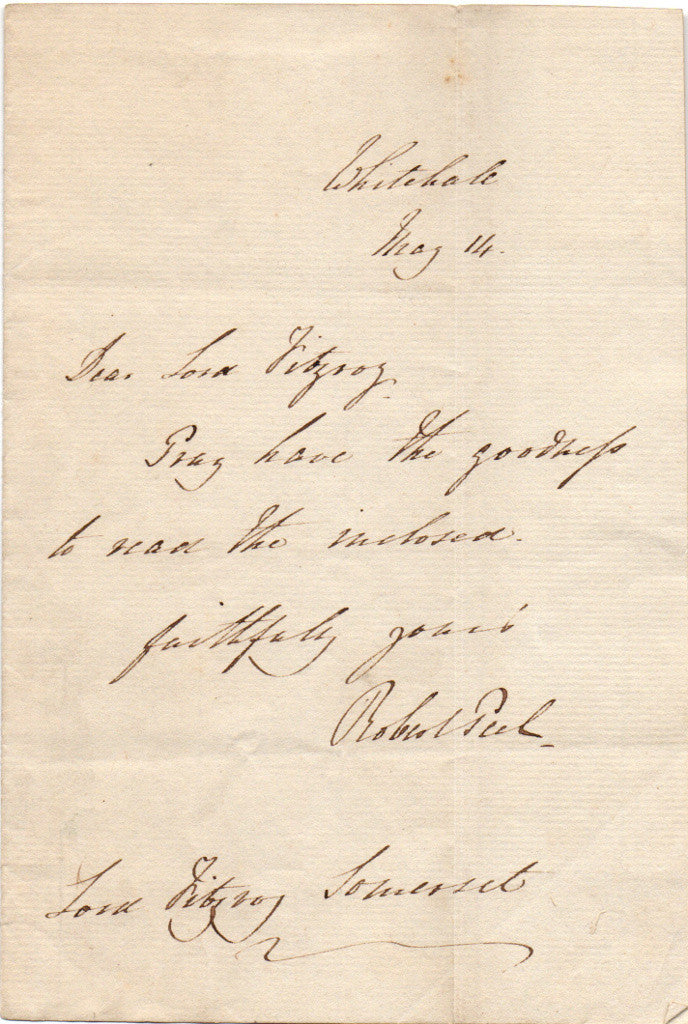 Whitehall
May 14.
Dear Lord Fitzroy
Pray have the goodness
to read the inclosed.
faithfully yours
Robert Peel
Lord Fitzroy Somerset